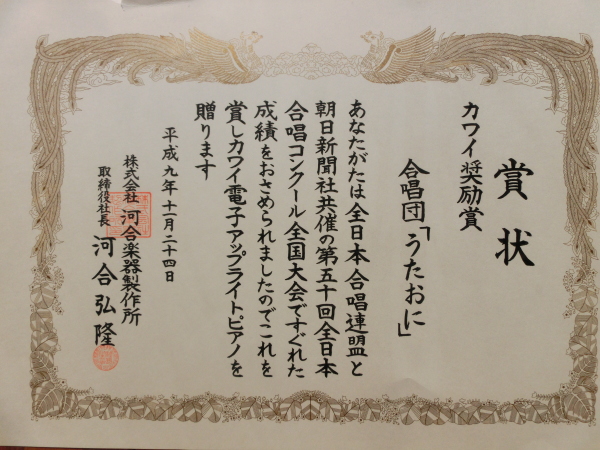 賞状
カワイ奨励賞
合唱団「うたおに」
あなたがたは全日本合唱連盟と
朝日新聞社共催の第五十回全日本
合唱コンクール全国大会ですぐれた
成績をおさめられましたのでこれを
賞しカワイ電子アップライトピアノを
贈ります
平成九年十一月二十四日
株式会社 河合楽器製作所
取締役社長 河合弘隆